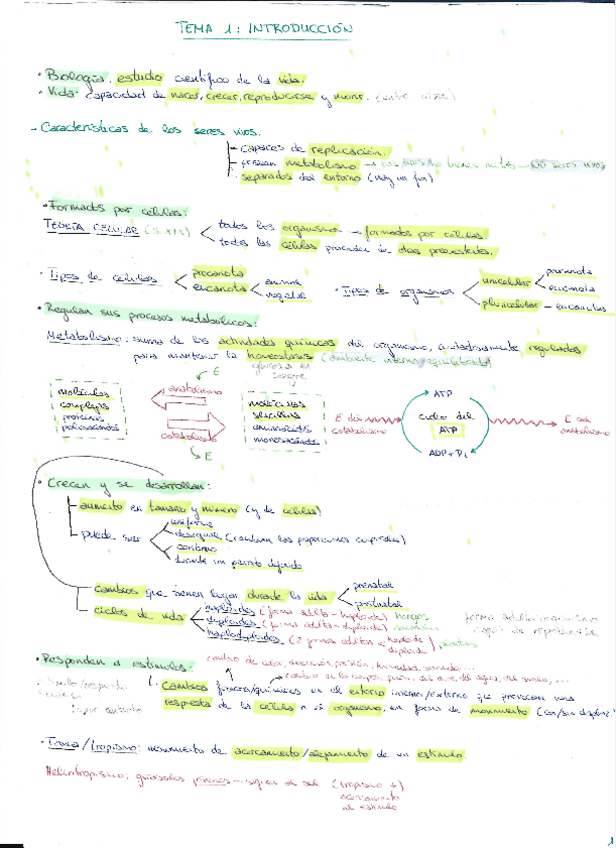 TEMA 1: INTRODUCCIÓN
• Biología: estudio científico de la vida.
• Vida: capacidad de nacer, crecer, reproducirse y morir. (entre otras)
- Características de los seres vivos.
- capaces de replicación.
- metabolismo → seres vivos
- separados del entorno (hay un fin)
• Formados por células:
TEORÍA CELULAR (S. XIX)
todos los organismos → formados por células.
todas las células proceden de otras preexistentes.
• Tipos de células
procariota
eucariota
animal
vegetal
• Tipos de organismos
unicelular
procariota
eucariota
pluricelular - eucariotas
• Regulan sus procesos metabólicos:
Metabolismo: suma de las actividades químicas del organismo, cuidadosamente reguladas
para mantener la homeostasis (ambiente interno equilibrado)
E
glucosa en sangre
moléculas
complejas
proteínas
polisacáridos
anabolismo
catabolismo
E
moléculas
sencillas
aminoácidos
monosacáridos
E del catabolismo
ATP
ciclo del
ATP
ADP + Pi
E del anabolismo
• Crecen y se desarrollan:
- aumento en tamaño y número (y de células)
- puede ser
uniforme
desigual
continuo
durante un periodo definido
- cambios que tienen lugar durante la vida
prenatal
postnatal
- ciclos de vida
haploides (forma adulta - haploide) hongos
diploides (forma adulta - diploide)
haplodiploides (2 formas adultas
haploide
diploide
) plantas
• Responden a estímulos:
cambio de
Cambios físicos/químicos en el entorno interno/externo que provocan una
respuesta de la célula o el organismo, en forma de movimiento
• Taxia / tropismo: movimiento de acercamiento/alejamiento de un estímulo.
Heliotropismo: girasoles jóvenes - siguen al sol (tropismo +)
acercamiento
al estímulo